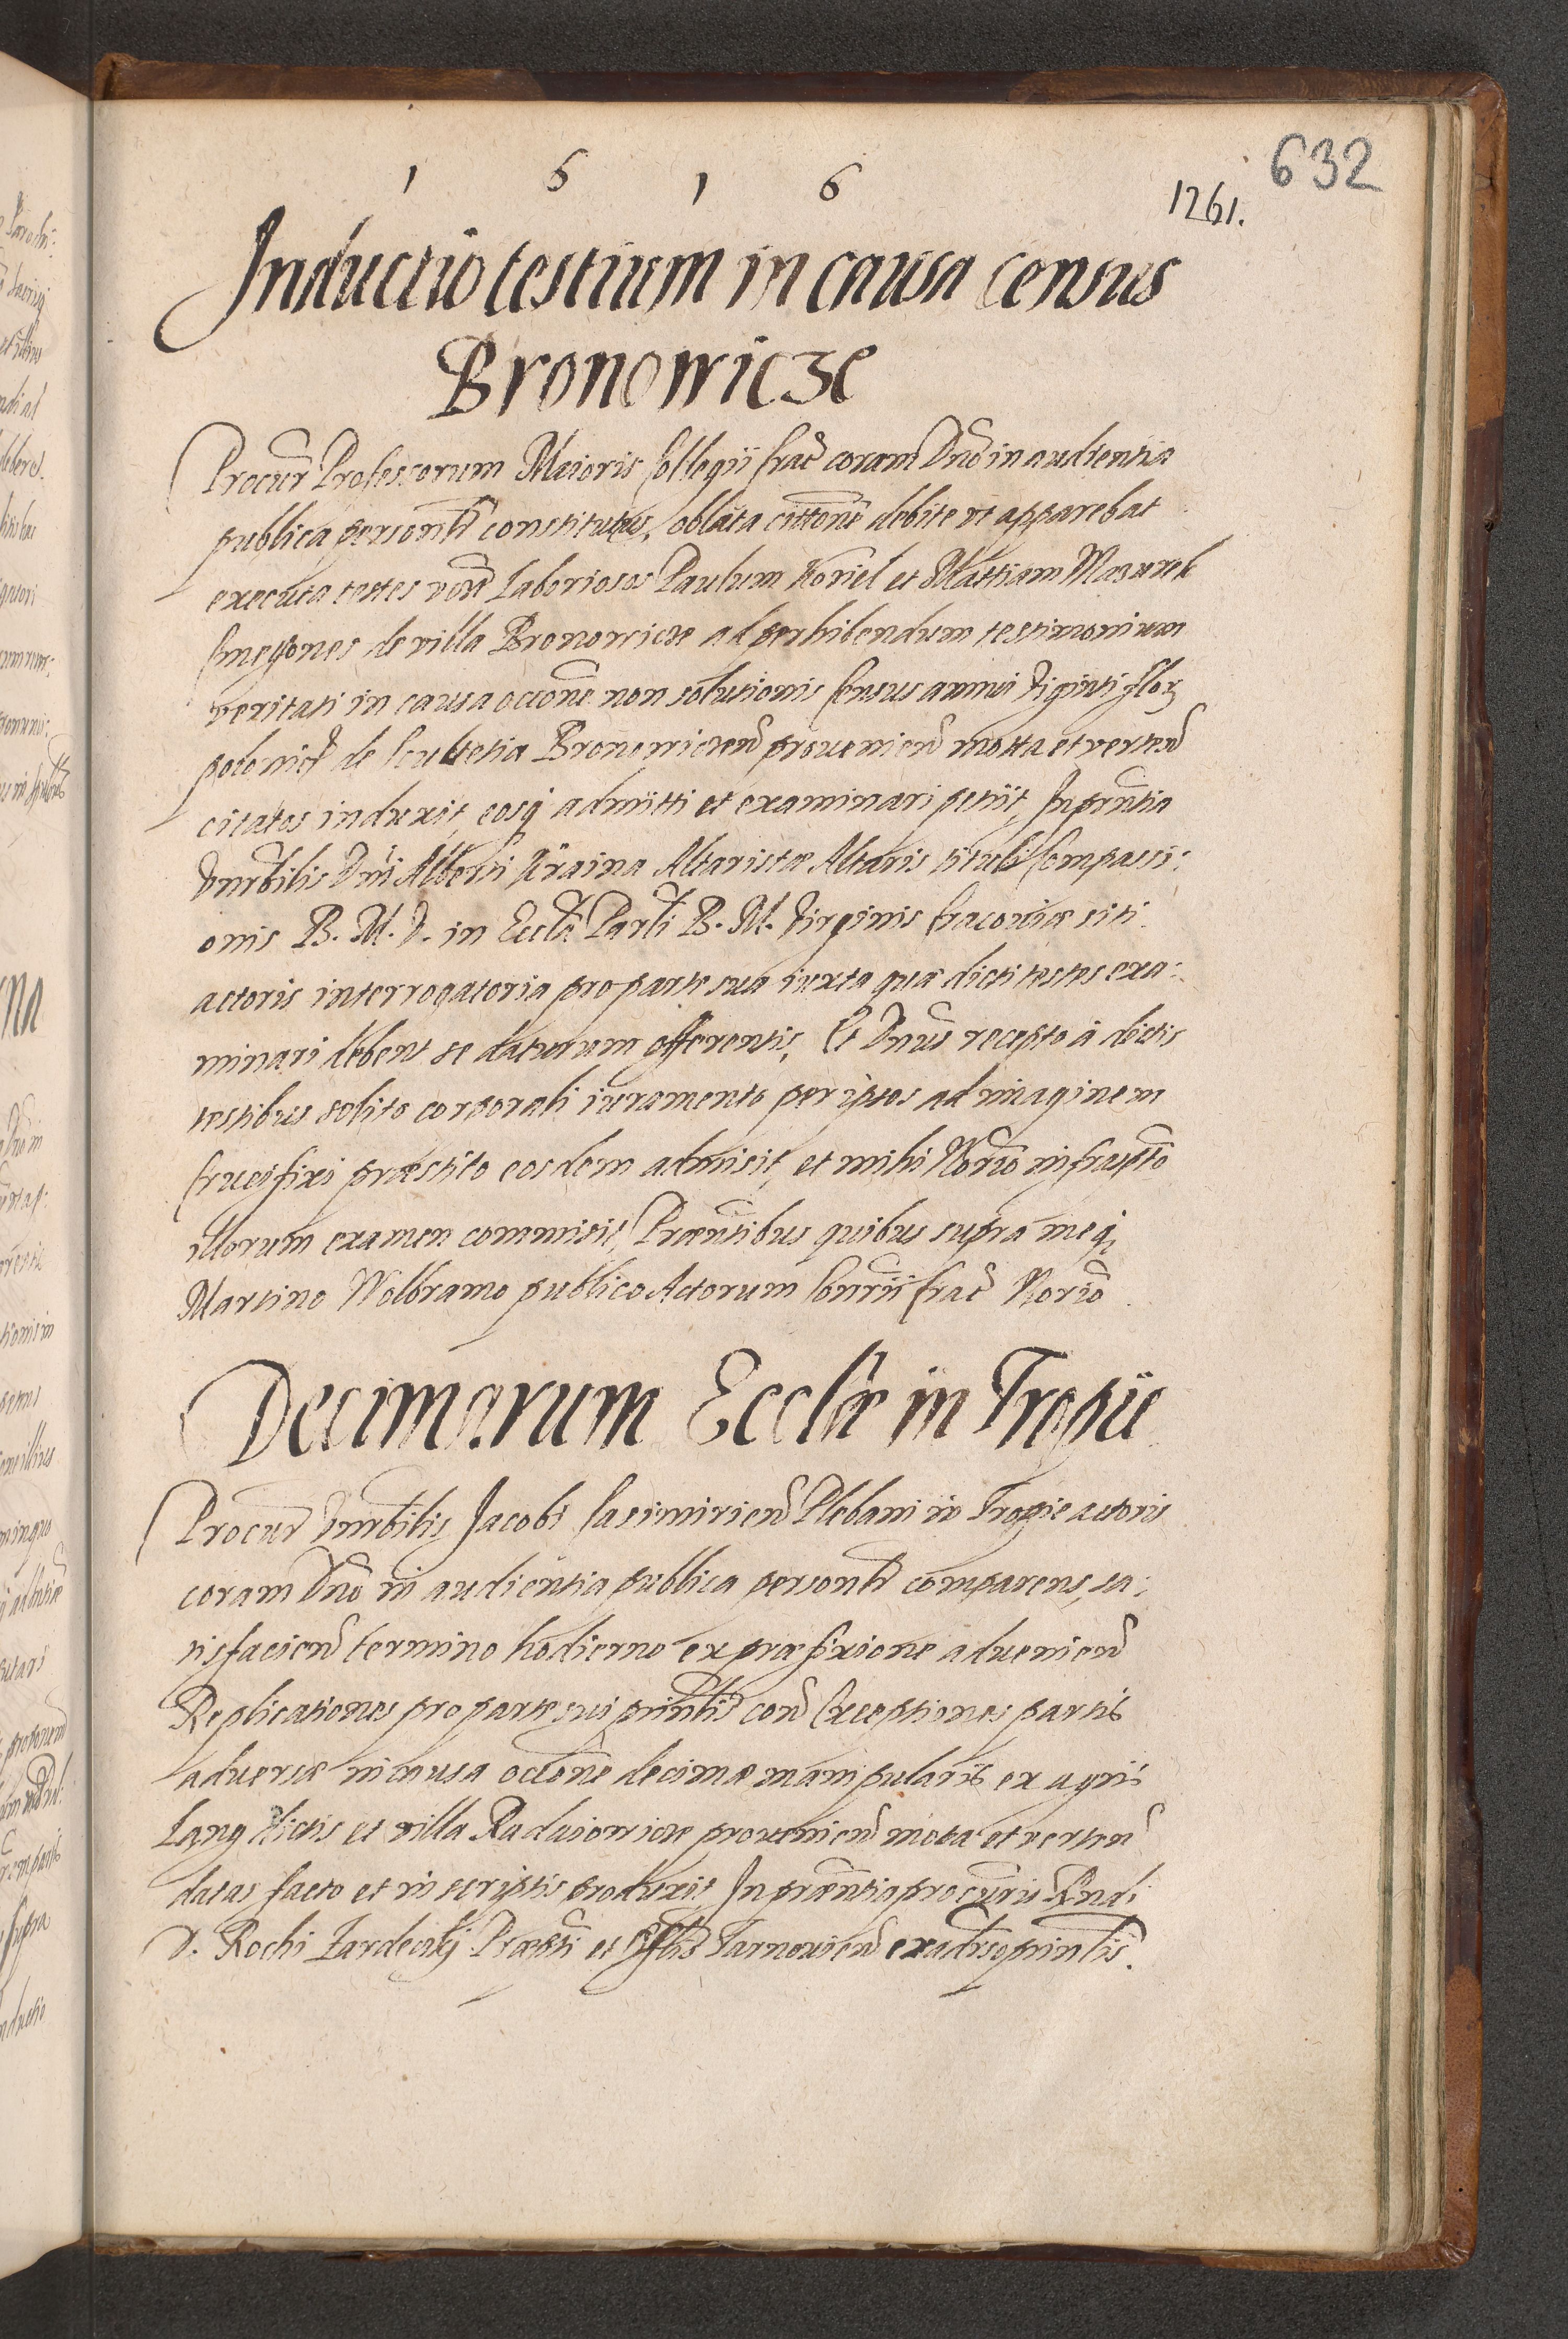 632
1 6 1 6
1261.
Inductio testium in causa census
Bronowicze
Procur Professorum Maioris Collegii Crac coram Dno in audientia
publica personlr constitutus, oblata cittone debite ut apparebat
executa testes nore Laboriosos Paulum Koziel et Mattiam Mazurek
Cmethones de villa Bronowicze ad perhibendum testimonium
veritati in causa occone non solutionis Census annui viginti flor
polonicl de Scultetia Bronowicien provenien mota et verten
citatos induxit, eosq admitti et examinari petiit, In prntia
Vnrbilis Dni Alberti Kraina Altaristae Altaris tituli Compassi:
onis B. M. V. in Eccla Parli B. M. Virginis Cracoviae siti
actoris interrogatoria pro parte sua iuxta quae dicti testes exa:
minari debent se daturum offerentis, Et Dnus recepto à dictis
testibus solito corporali iuramento per ipsos ad imaginem
Crucifixi praestito eosdem admisit, et mihi Norio infrascpto
illorum examen commisit, Praentibus quibus supra meq
Martino Wolbramo publico Actorum Consrii Crac Norio
Decimarum Ecclae in Tropie
Procur Vnrbilis Jacobi Casimirien Plebani in Tropie actoris
coram Dno in audientia publica personlr comparens, sa:
tisfacien termino hodierno ex praefixione advenien
Replicationes pro parte sui prinlis con Exceptiones partis
adversae in causa occone decimae manipularis ex agris
Lang dictis et villa Radaiowicze provenien mota et verten
datas facto et in scriptis produxit In praentia procuris Rndi
D. Rochi Praepti et Tarnovien ex adverso prinlis.